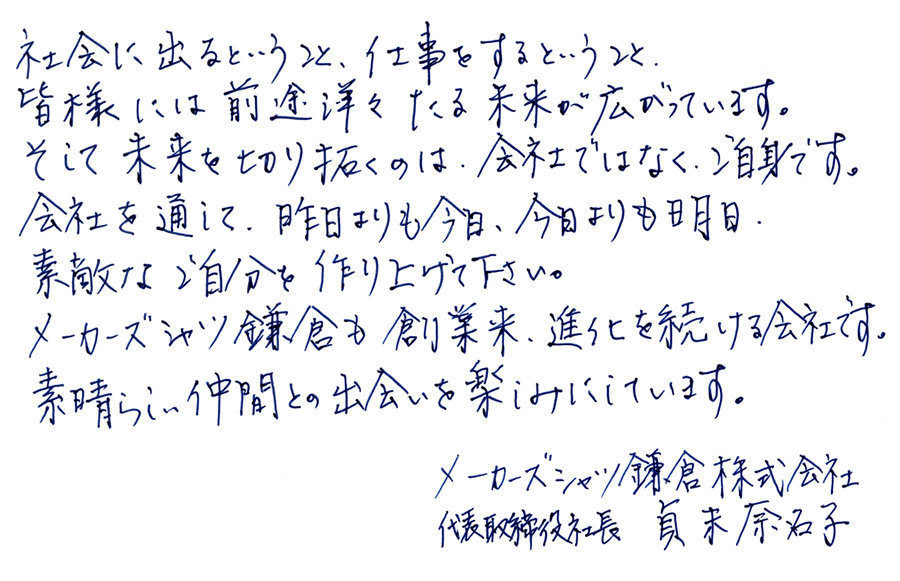 社会に出るということ、仕事をするということ、
皆様には前途洋々たる未来が広がっています。
そして未来を切り拓くのは、会社ではなく、ご自身です。
会社を通して、昨日よりも今日、今日よりも明日、
素敵なご自分を作り上げて下さい。
メーカーズシャツ鎌倉も創業来、進化を続ける会社です。
素晴らしい仲間との出会いを楽しみにしています。
メーカーズシャツ鎌倉株式会社
代表取締役社長 貞末奈名子